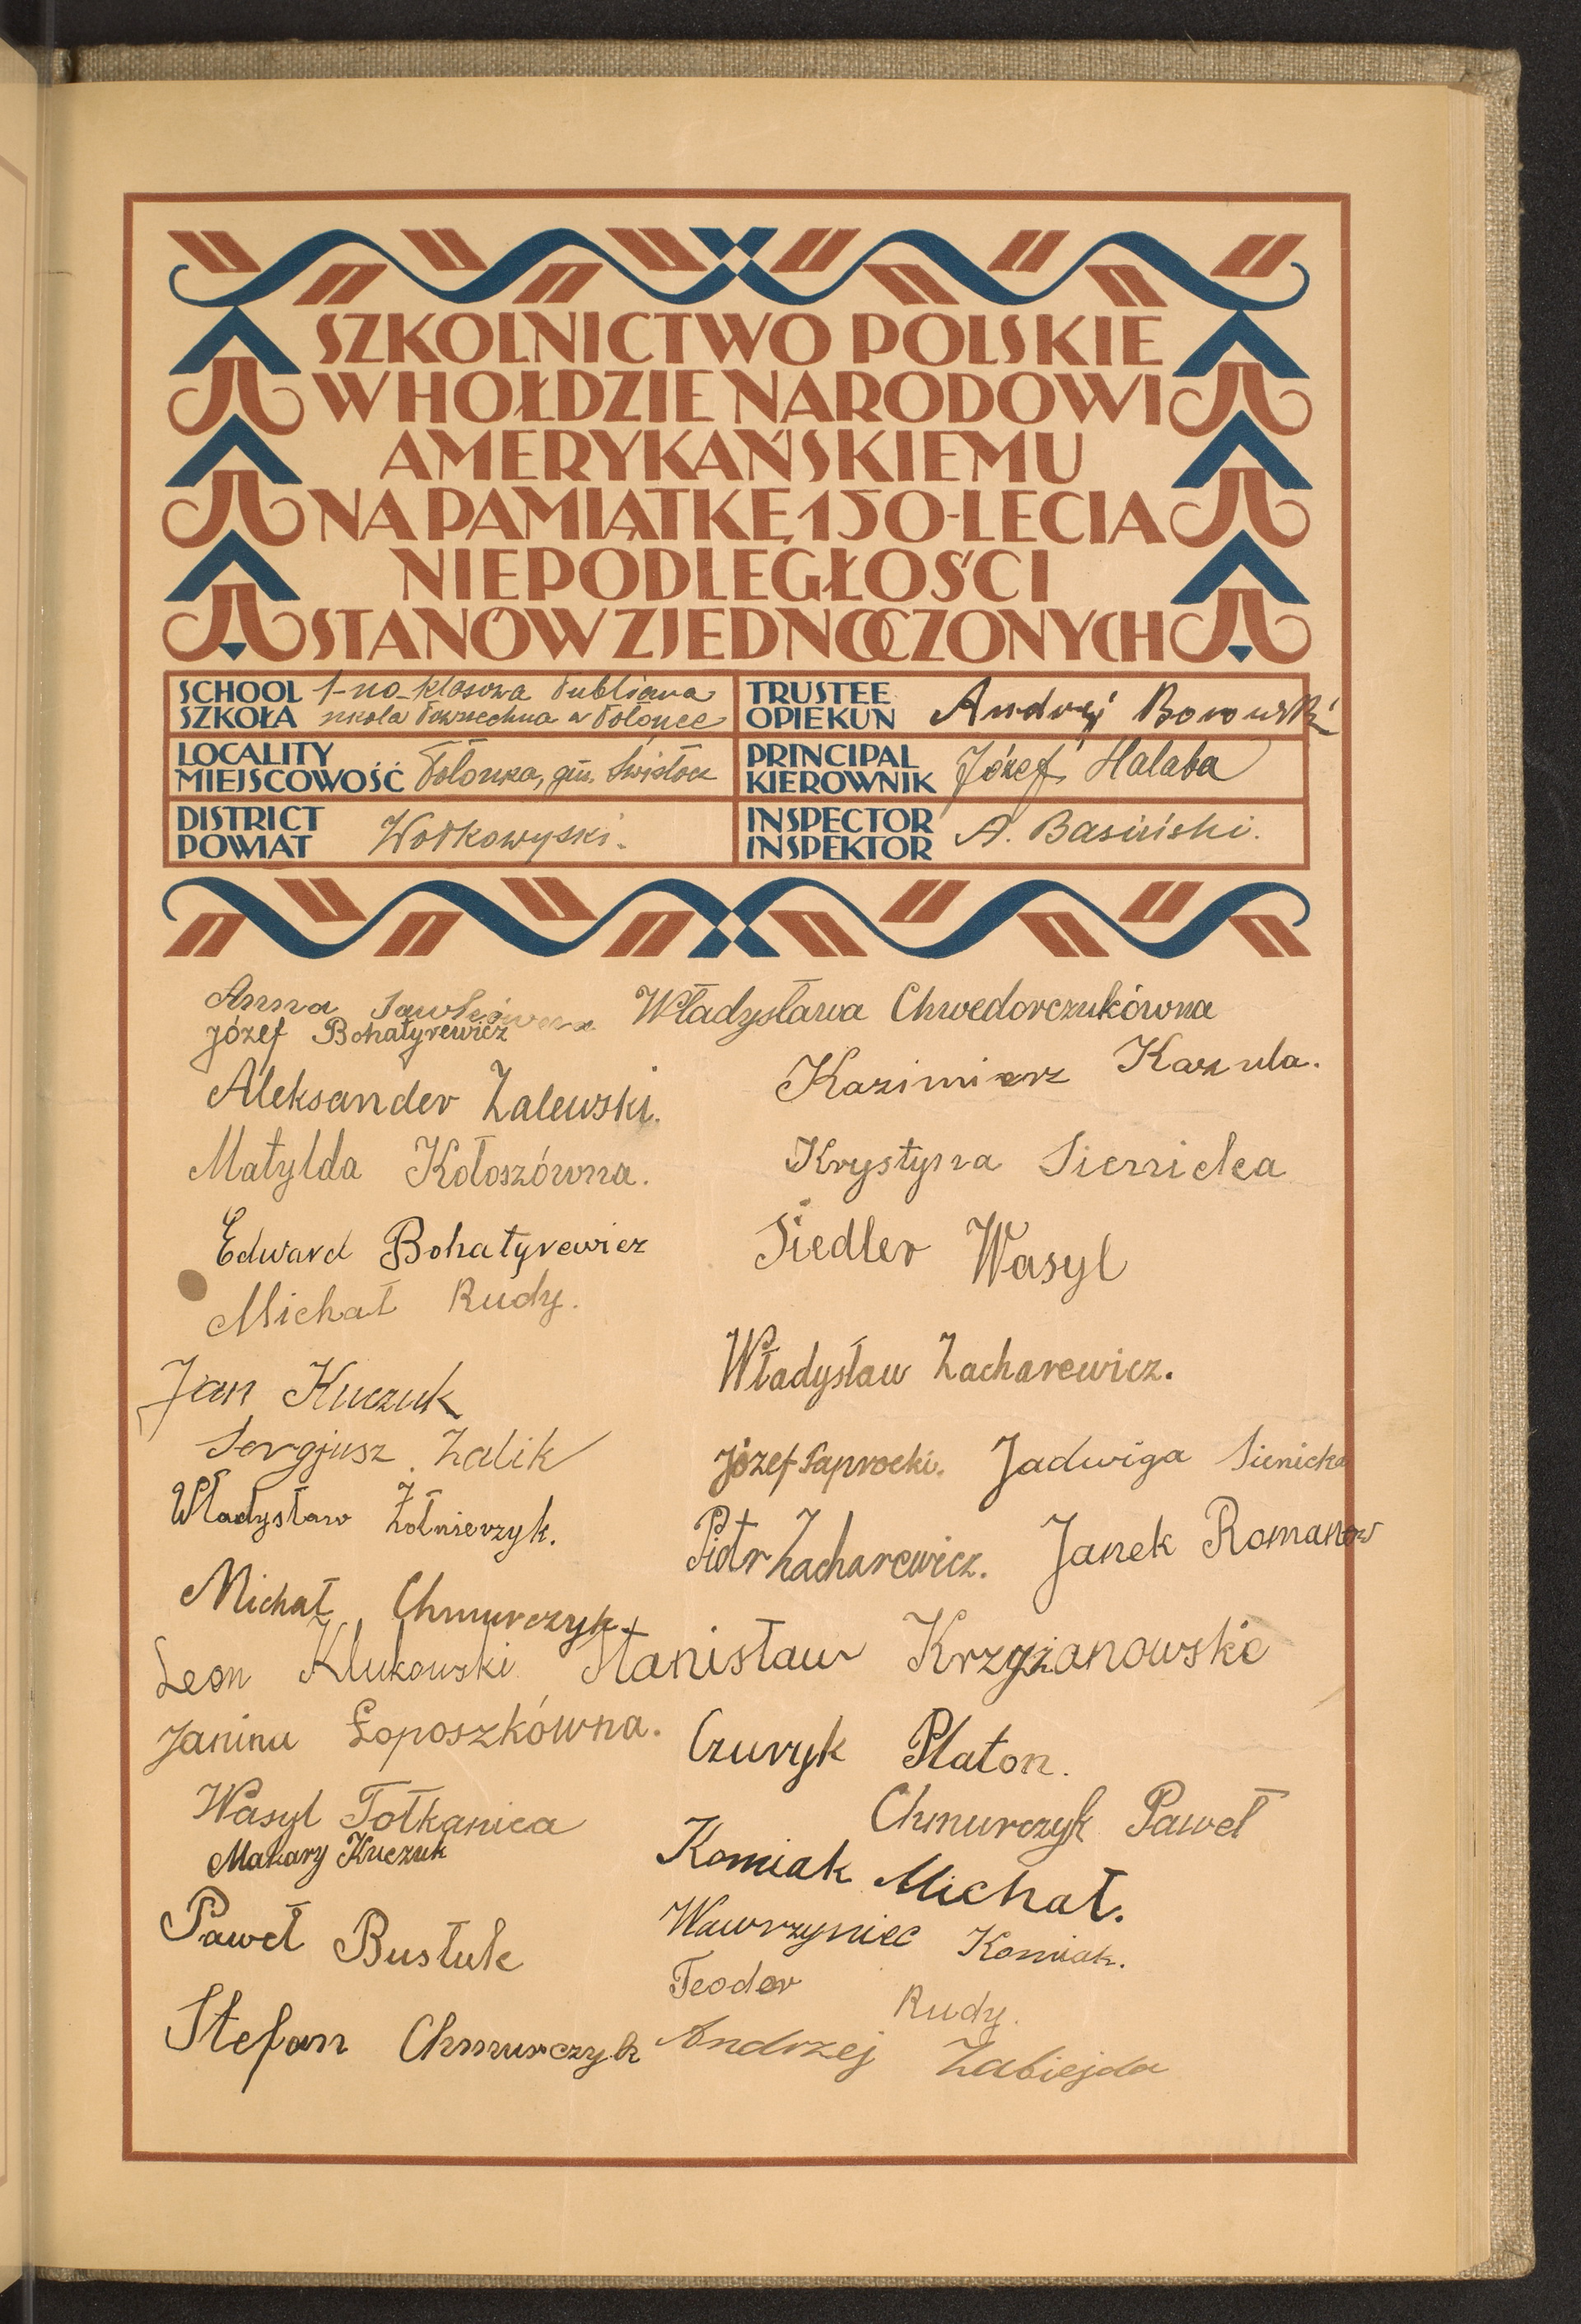 SZKOLNICTWO POLSKIE
W HOŁDZIE NARODOWI
AMERYKAŃSKIEMU
NA PAMIĄTKĘ 150-LECIA
NIEPODLEGŁOŚCI
STANÓW ZJEDNOCZONYCH
SCHOOL 1-no-klasowa Publiczna
SZKOŁA szkoła Powszechna w Połonce
LOCALITY
MIEJSCOWOŚĆ Połonka, gm. Świsłocz
DISTRICT
POWIAT Wołkowyski.
TRUSTEE
OPIEKUN Andrzej Borowski
PRINCIPAL
KIEROWNIK Józef Halaba
INSPECTOR
INSPEKTOR A. Basiński.
Anna
Józef Bohatyrewicz
Aleksander Zalewski.
Matylda Kołoszówna.
Edward Bohatyrewicz
Michał Rudy.
Jan Kuczuk
Sergjusz Zalik
Władysław Żołnierzyk.
Michał Chmurczyk
Leon Klukowski
Janina Łoposzkówna.
Wasyl Tołkanica
Makary Kuczuk
Paweł Bustuk
Stefan Chmurczyk
Władysława Chwedorczukówna
Kazimierz Kaszula.
Krystyna Sienicka
Siedler Wasyl
Władysław Zacharewicz.
Józef Saprocki. Jadwiga Sienicka
Piotr Zacharewicz. Janek Romanow
Stanisław Krzyżanowski
Czuryk Platon.
Chmurczyk Paweł
Komiak Michał.
Wawrzyniec Komiak.
Teodor Rudy.
Andrzej Zabiejda